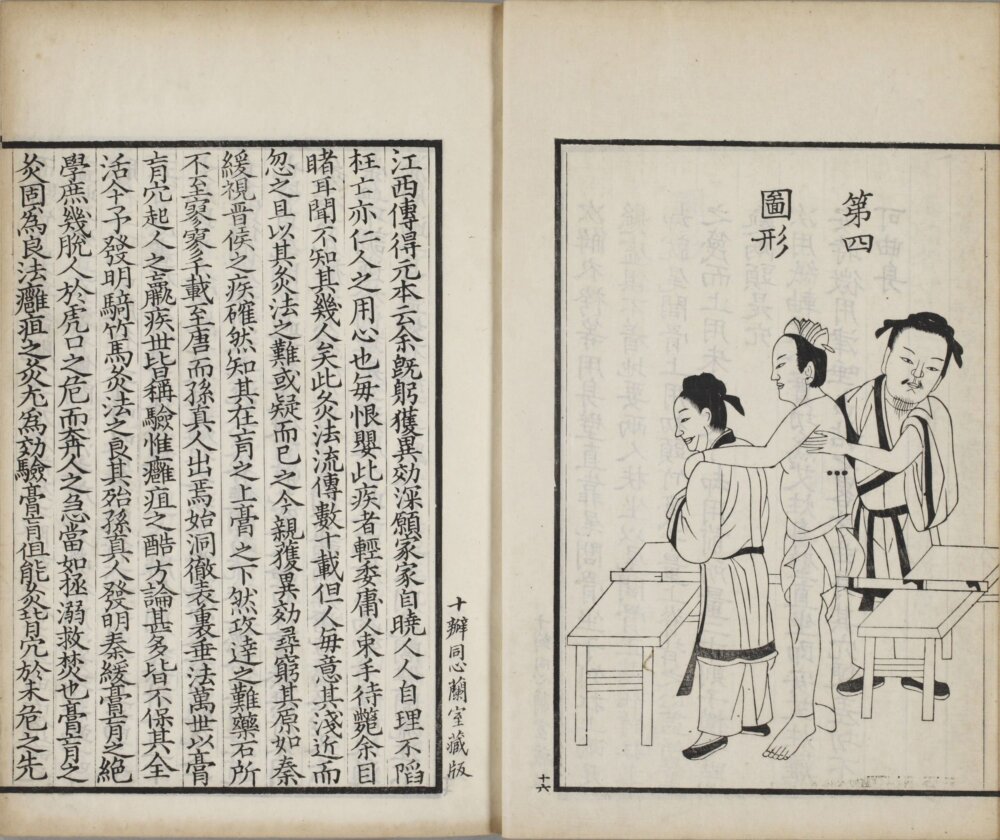 第四
圖形
十六
江西傳得元本云余既躬獲異効深願家家自曉人人自理不䧟
枉亡亦仁人之用心也每恨嬰此疾者輕委庸人束手待斃余目
睹耳聞不知其幾人矣此灸法流傳數十載但人每意其淺近而
忽之且以其灸法之難或疑而已之今親獲異効尋窮其原如秦
緩視晉侯之疾確然知其在肓之上膏之下然攻達之難藥石所
不至寥寥千載至唐而孫真人出焉始洞徹表裏垂法萬世以膏
肓穴起人之羸疾世皆稱驗惟癰疽之酷方論甚多皆不保其全
活今予發明騎竹馬灸法之良其殆孫真人發明秦緩膏肓之絕
學庶幾脫人於虎口之危而奔人之急當如拯溺救焚也膏肓之
灸固爲良法癰疽之灸尤爲効驗膏肓但能灸背穴於未危之先
十瓣同心蘭室藏版